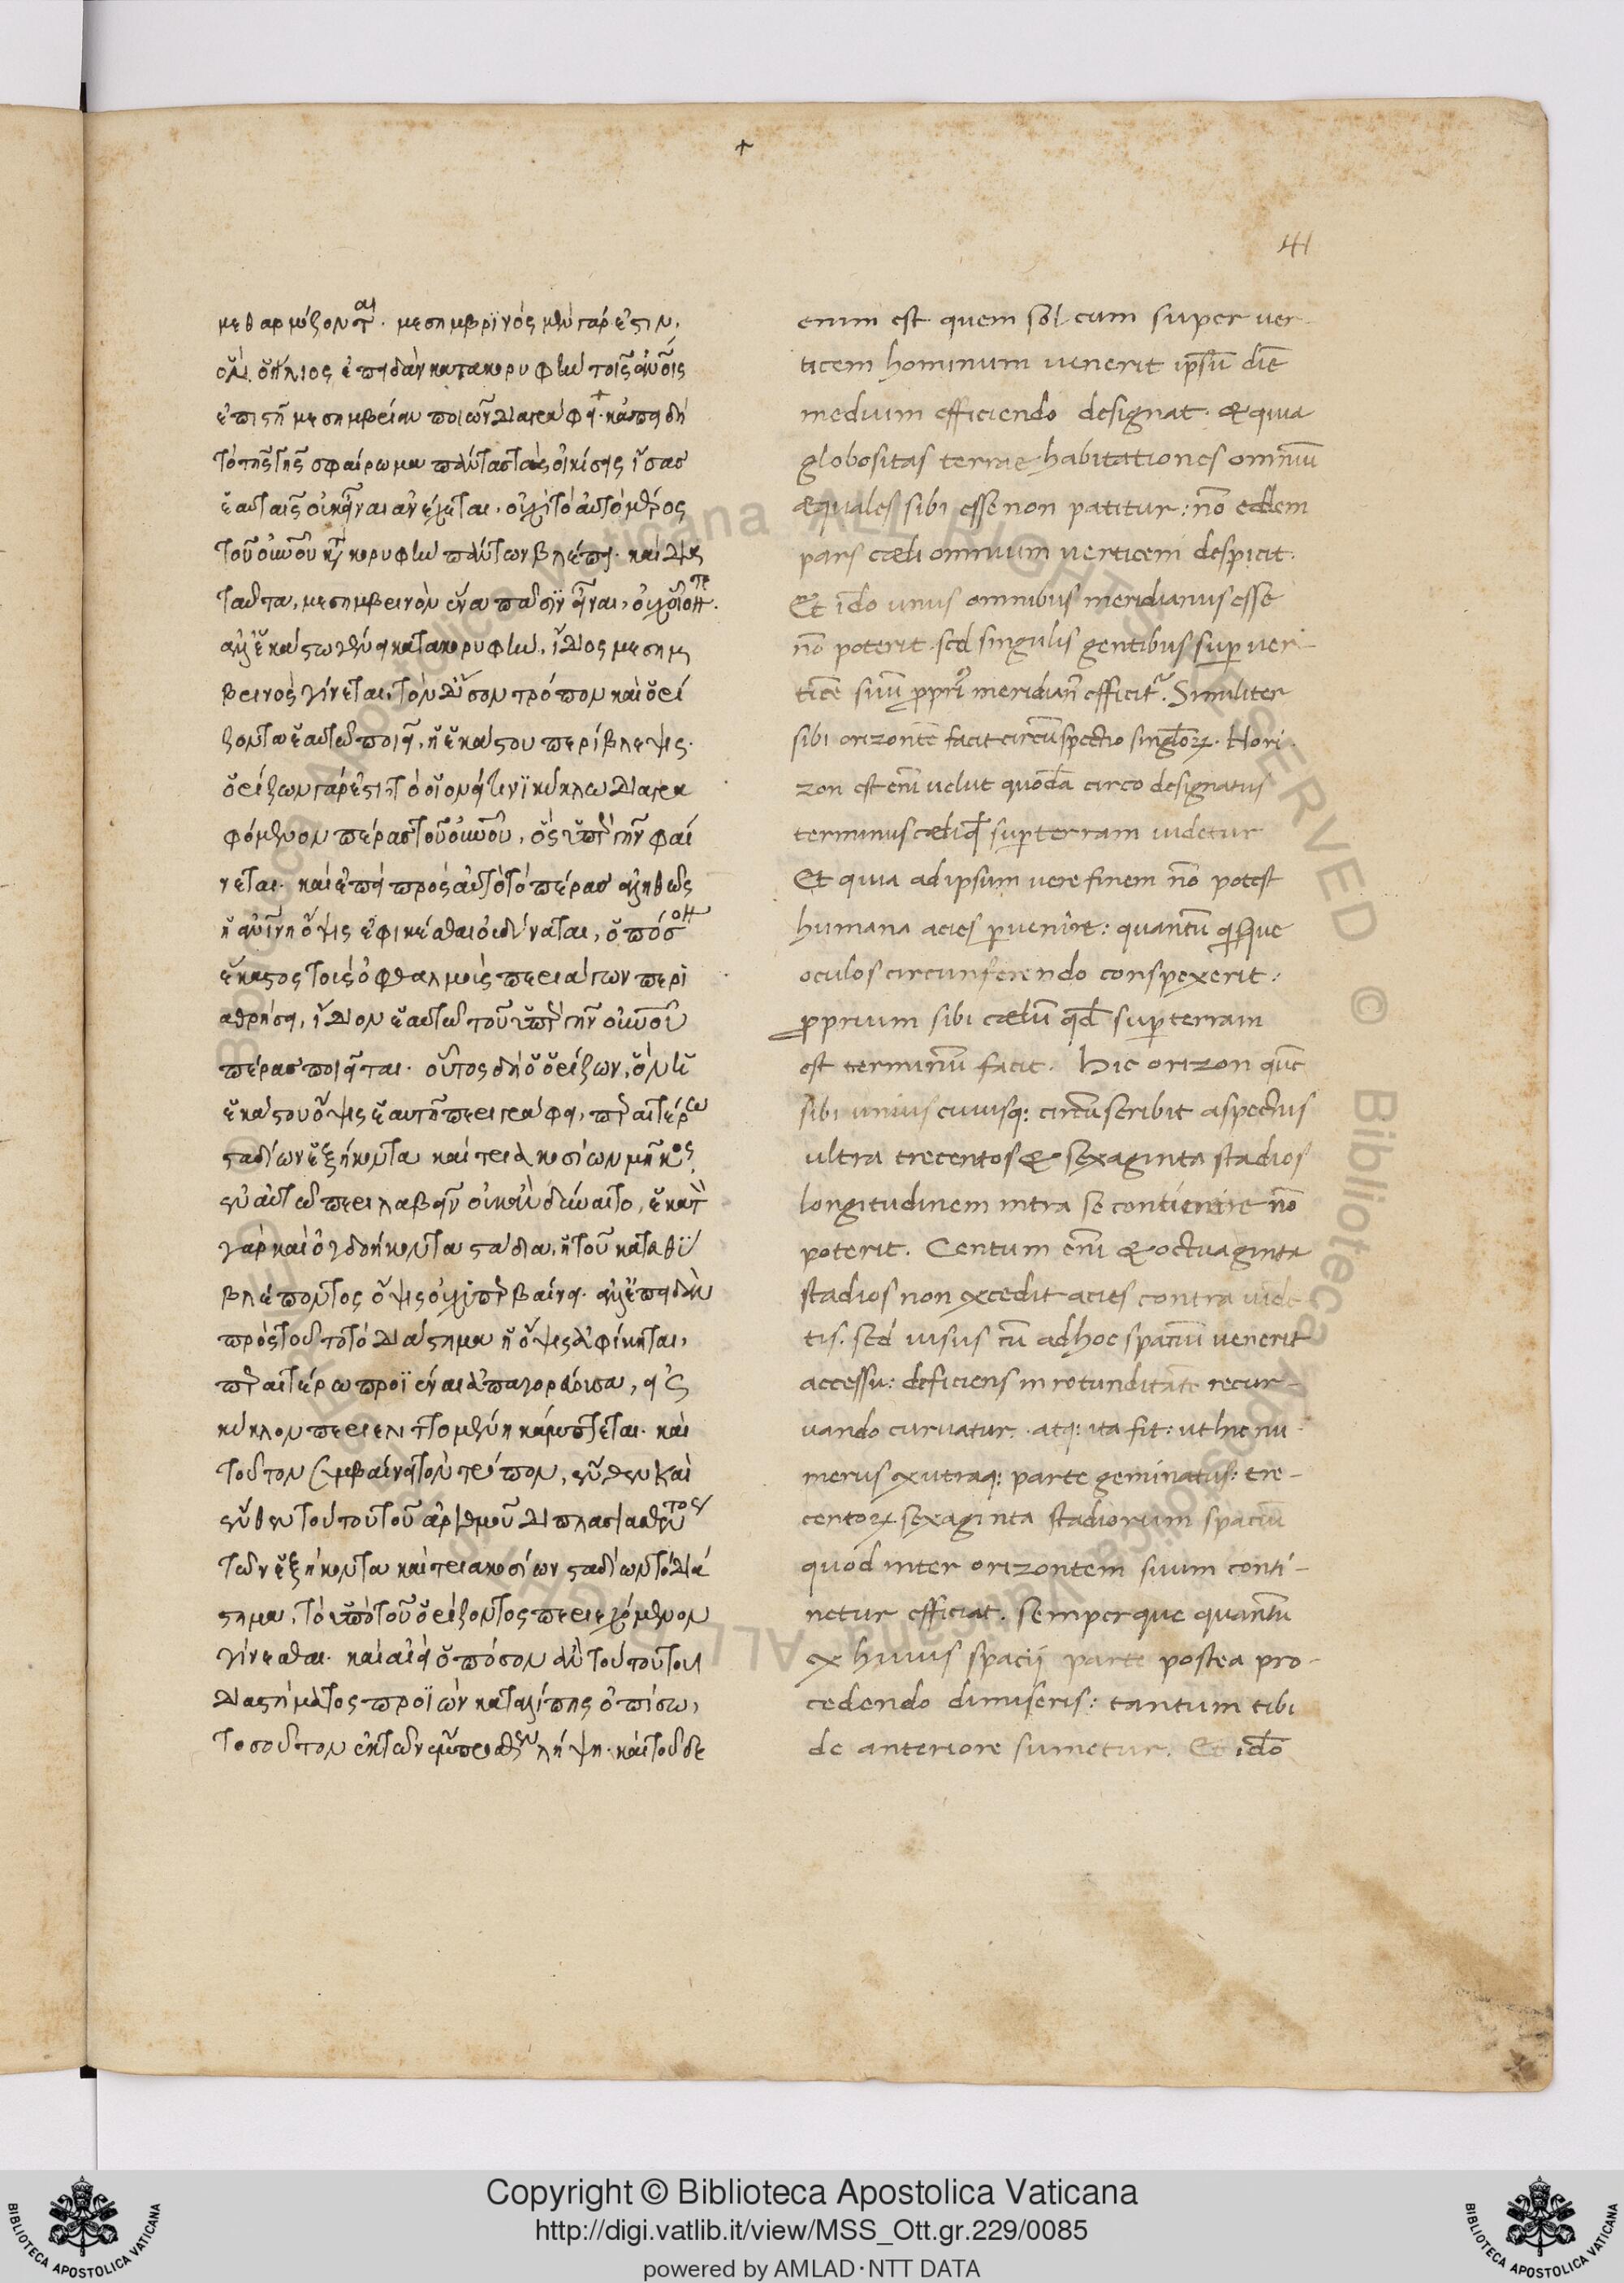 +
41
μεθαρμόζονται. μεσημβρϊνός μὲν γάρ ἐστιν,
ὃν ὁ ἥλιος ἐπειδὰν κατὰ κορυφὴν τοῖς ἀνοις
ἐπιστῆ μεσημβρίαν ποιῶν διαγράφει. κἀπειδὴ
τὸ τῆς γῆς σφαίρωμα πάντας τὰς οἰκίσεις ἴσας
ἑαυταῖς οὐκ εἶναι ἀνέχεται, οὐχὶ τὸ αὐτὸ μέρος
τοῦ οὐνοῦ κατὰ κορυφὴν πάντων βλέπει. καὶ διὰ
ταῦτα, μεσημβρινὸν ἕνα πᾶσιν εἶναι, οὐχ οἷόν τε.
ἀλλ' ἑκάστω ἔθνει κατὰ κορυφὴν, ἴδιος μεσημ
βρινὸς γίνεται. τὸν ἴσον τρόπον καὶ ὁρί
ζοντα ἑαυτῶ ποιεῖ, ἡ ἑκάστου περίβλεψις.
ὁρίζων γάρ ἐστι, τὸ οἱονεί τινϊ κύκλω διαγρα
φόμενον πέρας τοῦ οὐνοῦ, ὃς ὑπὲρ γῆν φαί
νεται. καὶ ἐπεὶ πρὸς αὐτὸ τὸ πέρας ἀληθῶς
ἡ ἀνίνη ὄψις ἐφικέσθαι οὐ δύναται, ὁπόσον
ἕκαστος τοῖς ὀφθαλμοῖς περιάγων περι
αθρήσει, ἴδιον ἑαυτῶ τοῦ ὑπὲρ γῆν οὐνοῦ
πέρας ποιεῖται. οὗτος δὴ ὁ ὁρίζων, ὃν ἡ
ἑκάστου ὄψις ἑαυτοῦ περιγράφει, περαιτέρω
σταδίων ἑξήκοντα καὶ τριακοσίων μῆκος
ἐν αὑτῶ περιλαβεῖν οὐκ ἂν δύναιτο, ἑκατὸν
γὰρ καὶ ὀγδοήκοντα στάδια, ἡ τοῦ κατ' εὐθὺ
βλέποντος ὄψις οὐχ ὑπερβαίνει. ἀλλ' ἐπειδὰν
πρὸς τοῦτο τὸ διάστημα ἡ ὄψις ἀφίκηται,
περαιτέρω προϊέναι ἀπαγορεύουσα, εἰς
κύκλον περιελιττομένη κάμπτεται. καὶ
τοῦτον συμβαίνει τὸν τρόπον, ἔνθεν καὶ
ἔνθεν τούτου τοῦ ἀριθμοῦ διπλασιασθέντος
τῶν ἑξήκοντα καὶ τριακοσίων σταδίων τὸ διά
στημα, τὸ ὑπὸ τοῦ ὁρίζοντος περιεχόμενον
γίνεσθαι. καὶ αἰεὶ ὁπόσον ἂν τούτου τοῦ
διαστήματος προϊὼν καταλίπης ὀπίσω,
τοσοῦτον ἐκ τῶν ἔμπροσθεν λήψη. καὶ τοῦδε
enim est quem sol cum super ver-
ticem hominum uenerit ipsũ diẽ
medium efficiendo designat. & quia
globositas terrae habitationes omniũ
æquales sibi esse non patitur: nõ eadem
pars cæli omnium verticem despicit.
Et iðo unus omnibus meridianus esse
nõ poterit. sed singulis gentibus sup ver-
ticẽ suũ propri⁹ meridian⁹ efficit᷑. Similiter
sibi orizontẽ facit circũspectio singloꝝ. Hori-
zon est enĩ uelut quodã circo designatus
terminus cæli q̃ sup terram uidetur
Et quia ad ipsum vere finem nõ potest
humana acies puenire: quantũ quisque
oculos circunferendo conspexerit:
proprium sibi cælũ qd̃ sup terram
est terminũ facit. Hic orizon quẽ
sibi unius cuiusq: circũscribit aspectus
ultra trecentos & sexaginta stadios
longitudinem intra se continere nõ
poterit. Centum enĩ & octuaginta
stadios non excedit acies contra uidẽ
tis. sed uisus cũ ad hoc spatiũ uenerit
accessu: deficiens in rotunditate recur-
uando curuatur. atq: ita fit: ut hic nu-
merus ex utraq: parte geminatus: tre-
centoꝝ sexaginta stadiorum spaciũ
quod inter orizontem suum conti-
netur efficiat. semperque quantũ
ex huius spacij parte postea pro-
cedendo dimiseris: tantum tibi
de anteriore sumetur. Et iðo
Copyright © Biblioteca Apostolica Vaticana
http://digi.vatlib.it/view/MSS_Ott.gr.229/0085
powered by AMLAD·NTT DATA
BIBLIOTECA APOSTOLICA VATICANA
BIBLIOTECA APOSTOLICA VATICANA